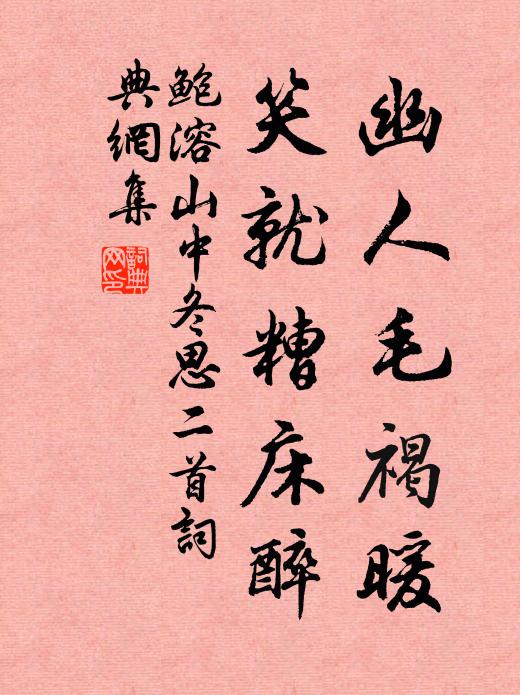 幽人毛褐暖
笑就糟床醉
鲍溶山中冬思二首詞
典網集
詞典网印